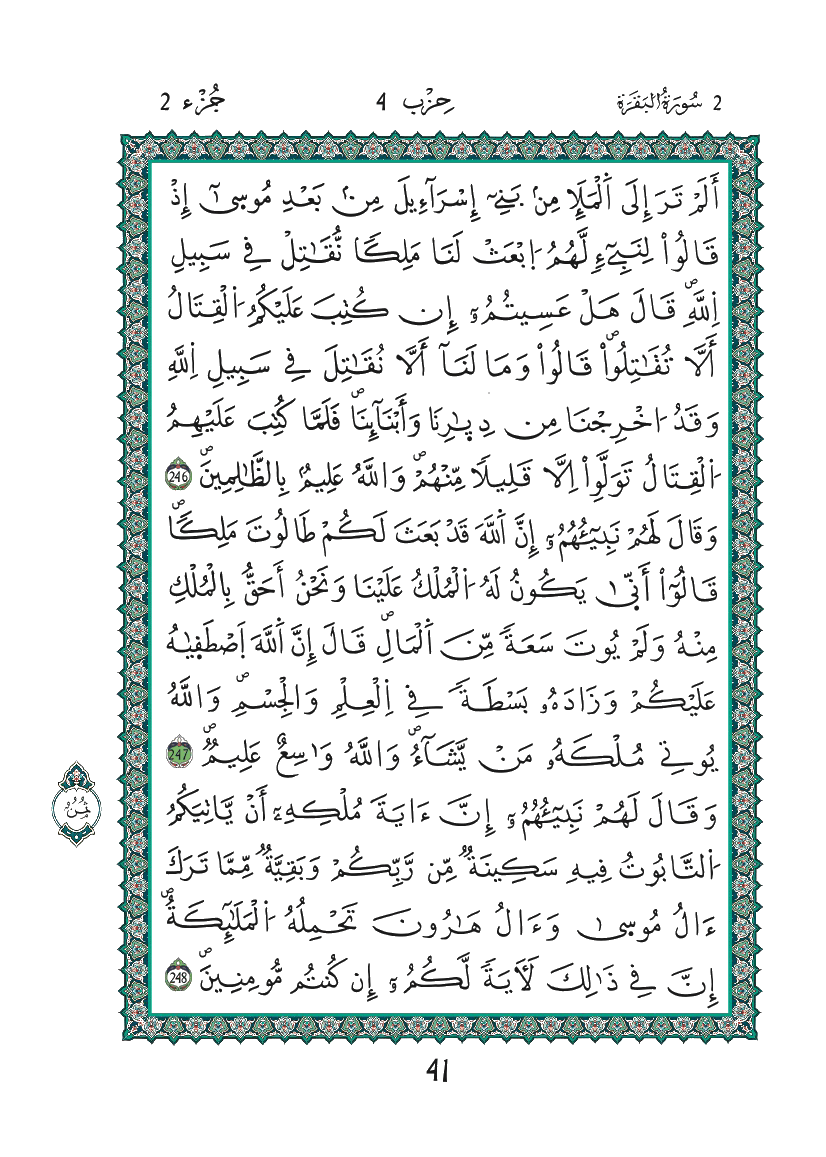 2 سُورَةُ البَقَرَة
حِزْب 4
جُزْء 2
أَلَمْ تَرَ إِلَى اَ۬لْمَلَإِ مِنۢ بَنِےٓ إِسْرَآءِيلَ مِنۢ بَعْدِ مُوس۪ىٰٓ إِذْ
قَالُواْ لِنَبِےٓءٖ لَّهُمُ اُ۪بْعَثْ لَنَا مَلِكاٗ نُّقَٰتِلْ فِے سَبِيلِ
اِ۬للَّهِۖ قَالَ هَلْ عَسِيتُمُۥٓ إِن كُتِبَ عَلَيْكُمُ اُ۬لْقِتَالُ
أَلَّا تُقَٰتِلُواْۖ قَالُواْ وَمَا لَنَآ أَلَّا نُقَٰتِلَ فِے سَبِيلِ اِ۬للَّهِ
وَقَدُ ا۟خْرِجْنَا مِن دِيٰ۪رِنَا وَأَبْنَآئِنَاۖ فَلَمَّا كُتِبَ عَلَيْهِمُ
اُ۬لْقِتَالُ تَوَلَّوِاْ اِلَّا قَلِيلاٗ مِّنْهُمْۖ وَاللَّهُ عَلِيمُۢ بِالظَّٰلِمِينَۖ 246
وَقَالَ لَهُمْ نَبِيٓـُٔهُمُۥٓ إِنَّ اَ۬للَّهَ قَدْ بَعَثَ لَكُمْ طَالُوتَ مَلِكاٗۖ
قَالُوٓاْ أَنّ۪ىٰ يَكُونُ لَهُ اُ۬لْمُلْكُ عَلَيْنَا وَنَحْنُ أَحَقُّ بِالْمُلْكِ
مِنْهُ وَلَمْ يُوتَ سَعَةٗ مِّنَ اَ۬لْمَالِۖ قَالَ إِنَّ اَ۬للَّهَ اَ۪صْطَف۪يٰهُ
عَلَيْكُمْ وَزَادَهُۥ بَسْطَةٗ فِے اِ۬لْعِلْمِ وَالْجِسْمِۖ وَاللَّهُ
يُوتِے مُلْكَهُۥ مَنْ يَّشَآءُۖ وَاللَّهُ وَٰسِعٌ عَلِيمٞۖ 247
وَقَالَ لَهُمْ نَبِيٓـُٔهُمُۥٓ إِنَّ ءَايَةَ مُلْكِهِۦٓ أَنْ يَّاتِيَكُمُ
اُ۬لتَّابُوتُ فِيهِ سَكِينَةٞ مِّن رَّبِّكُمْ وَبَقِيَّةٞ مِّمَّا تَرَكَ
ءَالُ مُوس۪ىٰ وَءَالُ هَٰرُونَ تَحْمِلُهُ اُ۬لْمَلَٰٓئِكَةُۖ
إِنَّ فِے ذَٰلِكَ لَأٓيَةٗ لَّكُمُۥٓ إِن كُنتُم مُّومِنِينَۖ 248
ثُمُن
41